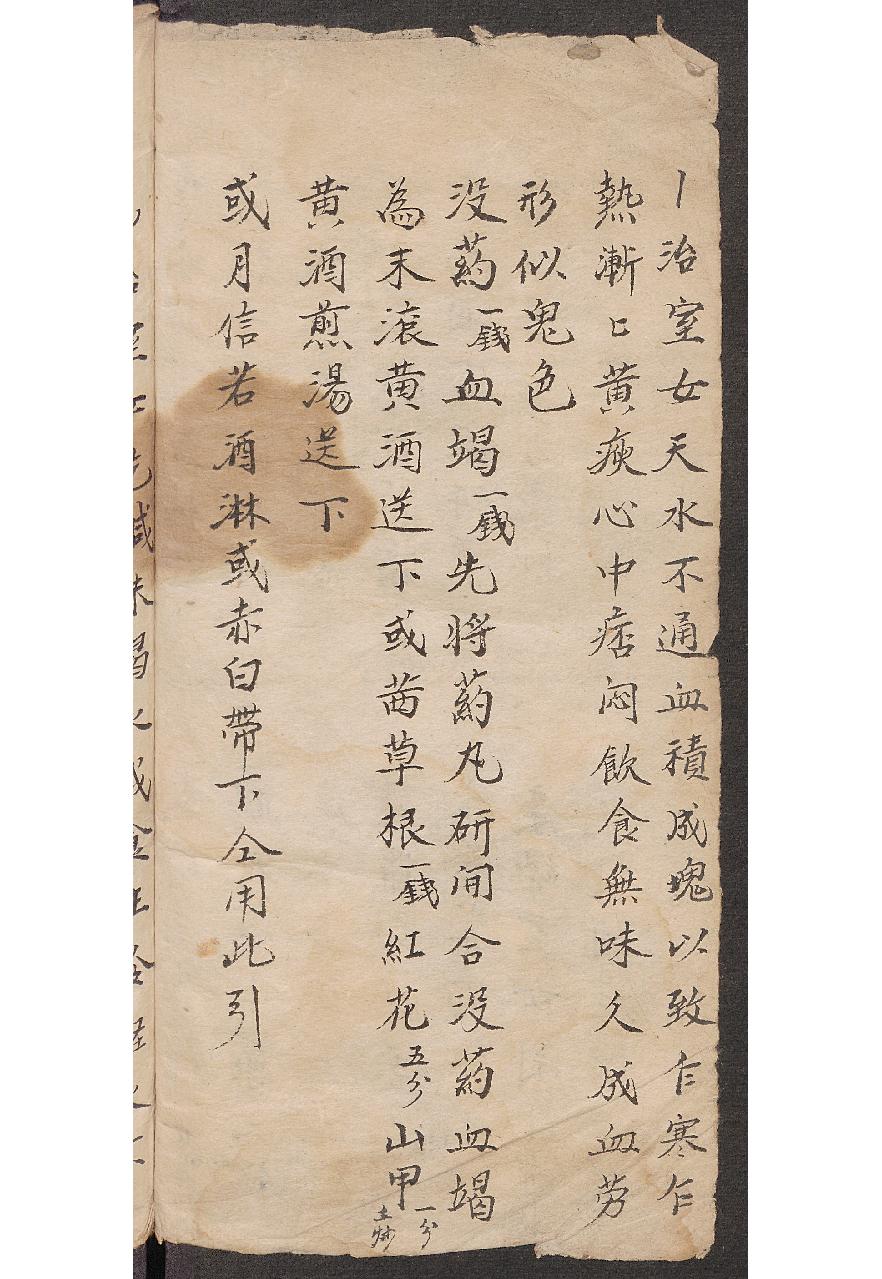 丨治室女天水不通血積成塊以致乍寒乍
熱漸〻黄瘐心中痞闷飲食無味久成血劳
形似鬼色
没葯一錢血竭一錢先将葯丸研间合没葯血竭
為末滚黄酒送下或茜草根一錢紅花五分山甲一分土炒
黄酒煎湯送下
或月信若酒淋或赤白帶下仝用此引